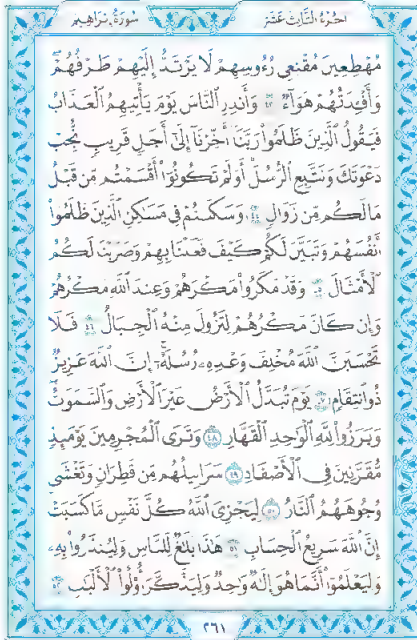 سورة إبراهيم الجزء الثالث عشر
مُهْطِعِينَ مُقْنِعِي رُءُوسِهِمْ لَا يَرْتَدُّ إِلَيْهِمْ طَرْفُهُمْ
وَأَفْـِٔدَتُهُمْ هَوَآءٌ ٤٣ وَأَنذِرِ ٱلنَّاسَ يَوْمَ يَأْتِيهِمُ ٱلْعَذَابُ
فَيَقُولُ ٱلَّذِينَ ظَلَمُوا۟ رَبَّنَآ أَخِّرْنَآ إِلَىٰٓ أَجَلٍ قَرِيبٍ نُّجِبْ
دَعْوَتَكَ وَنَتَّبِعِ ٱلرُّسُلَ أَوَلَمْ تَكُونُوٓا۟ أَقْسَمْتُم مِّن قَبْلُ
مَا لَكُم مِّن زَوَالٍ ٤٤ وَسَكَنتُمْ فِى مَسَـٰكِنِ ٱلَّذِينَ ظَلَمُوٓا۟
أَنفُسَهُمْ وَتَبَيَّنَ لَكُمْ كَيْفَ فَعَلْنَا بِهِمْ وَضَرَبْنَا لَكُمُ
ٱلْأَمْثَالَ ٤٥ وَقَدْ مَكَرُوا۟ مَكْرَهُمْ وَعِندَ ٱللَّهِ مَكْرُهُمْ
وَإِن كَانَ مَكْرُهُمْ لِتَزُولَ مِنْهُ ٱلْجِبَالُ ٤٦ فَلَا
تَحْسَبَنَّ ٱللَّهَ مُخْلِفَ وَعْدِهِۦ رُسُلَهُۥٓ إِنَّ ٱللَّهَ عَزِيزٌ
ذُو ٱنتِقَامٍ ٤٧ يَوْمَ تُبَدَّلُ ٱلْأَرْضُ غَيْرَ ٱلْأَرْضِ وَٱلسَّمَـٰوَٰتُ
وَبَرَزُوا۟ لِلَّهِ ٱلْوَٰحِدِ ٱلْقَهَّارِ ٤٨ وَتَرَى ٱلْمُجْرِمِينَ يَوْمَئِذٍ
مُّقَرَّنِينَ فِى ٱلْأَصْفَادِ ٤٩ سَرَابِيلُهُم مِّن قَطِرَانٍ وَتَغْشَىٰ
وُجُوهَهُمُ ٱلنَّارُ ٥٠ لِيَجْزِىَ ٱللَّهُ كُلَّ نَفْسٍ مَّا كَسَبَتْ
إِنَّ ٱللَّهَ سَرِيعُ ٱلْحِسَابِ ٥١ هَـٰذَا بَلَـٰغٌ لِّلنَّاسِ وَلِيُنذَرُوا۟ بِهِۦ
وَلِيَعْلَمُوٓا۟ أَنَّمَا هُوَ إِلَـٰهٌ وَٰحِدٌ وَلِيَذَّكَّرَ أُو۟لُوا۟ ٱلْأَلْبَـٰبِ ٥٢
٢٦١